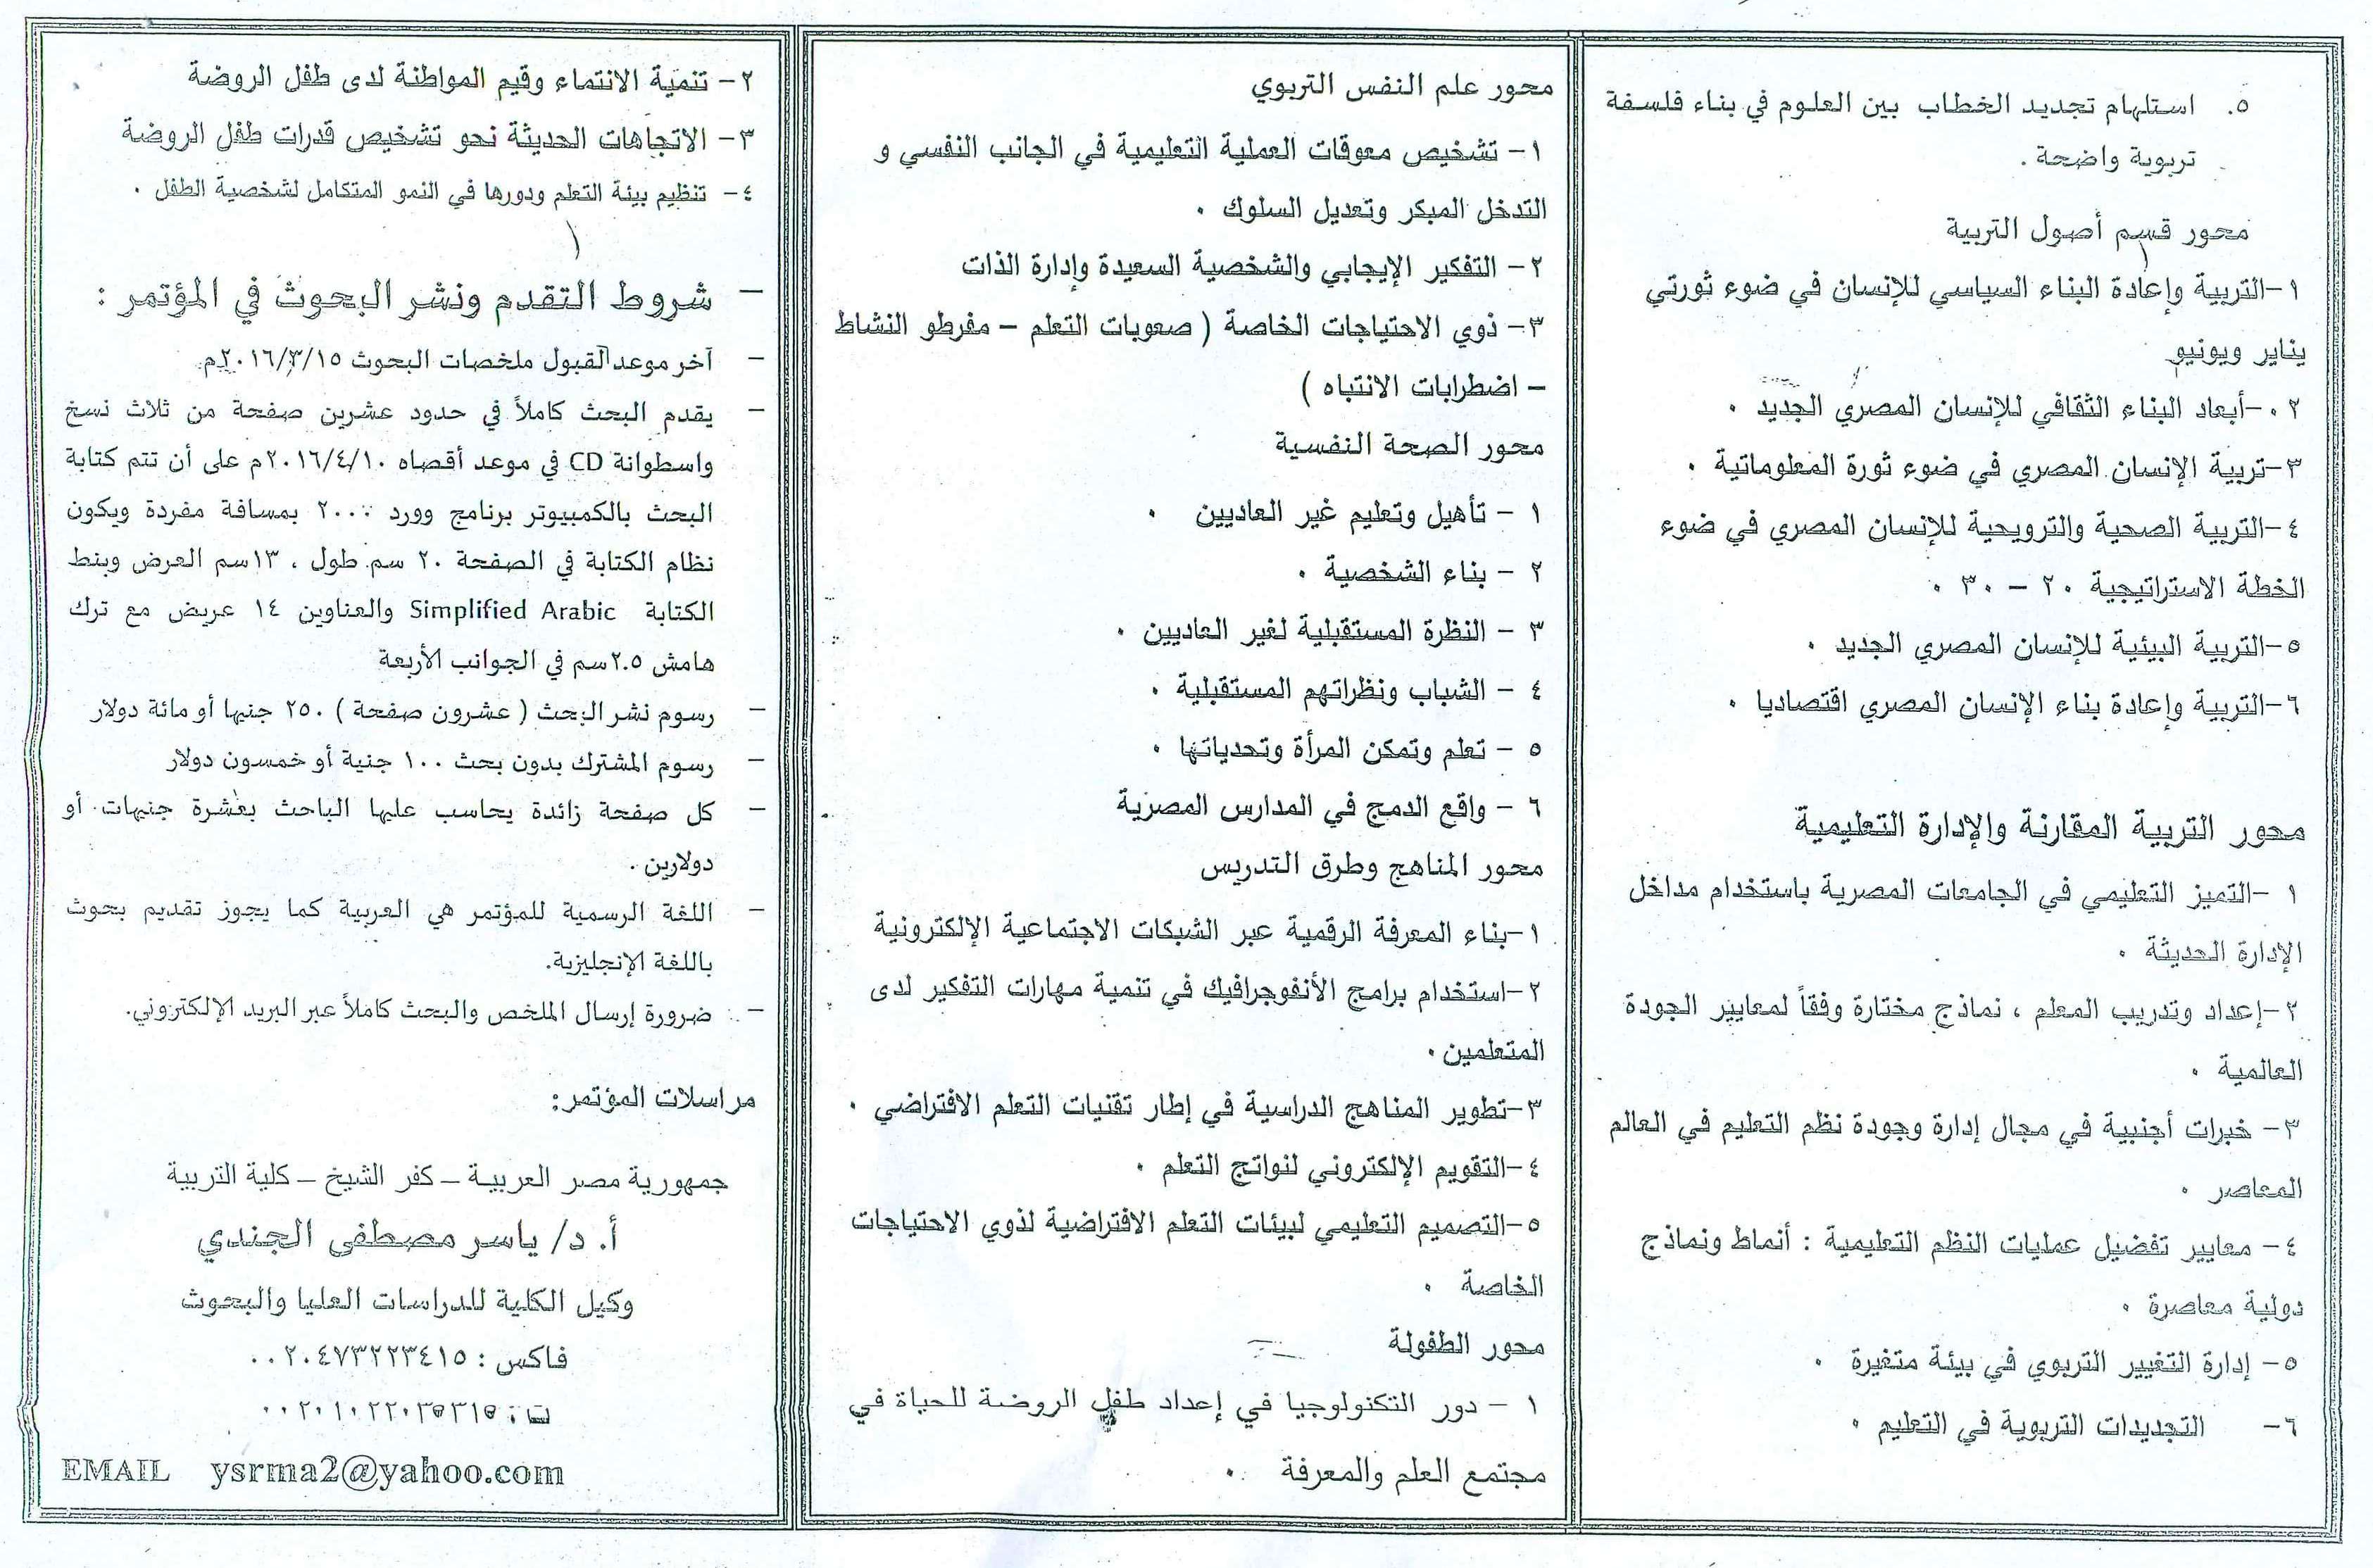 ٥. استلهام تجديد الخطاب بين العلوم في بناء فلسفة
تربوية واضحة .
محور قسم أصول التربية
١-التربية وإعادة البناء السياسي للإنسان في ضوء ثورتي
يناير ويونيو
٢ .-أبعاد البناء الثقافي للإنسان المصري الجديد .
٣-تربية الإنسان المصري في ضوء ثورة المعلوماتية .
٤-التربية الصحية والترويحية للإنسان المصري في ضوء
الخطة الاستراتيجية ٢٠ – ٣٠ .
٥-التربية البيئية للإنسان المصري الجديد .
٦-التربية وإعادة بناء الإنسان المصري اقتصاديا .
محور التربية المقارنة والإدارة التعليمية
١ -التميز التعليمي في الجامعات المصرية باستخدام مداخل
الإدارة الحديثة .
٢-إعداد وتدريب المعلم ، نماذج مختارة وفقاً لمعايير الجودة
العالمية .
٣- خبرات أجنبية في مجال إدارة وجودة نظم التعليم في العالم
المعاصر .
٤- معايير تفضيل عمليات النظم التعليمية : أنماط ونماذج
دولية معاصرة .
٥- إدارة التغيير التربوي في بيئة متغيرة .
٦- التجديدات التربوية في التعليم .
محور علم النفس التربوي
١- تشخيص معوقات العملية التعليمية في الجانب النفسي و
التدخل المبكر وتعديل السلوك .
٢- التفكير الإيجابي والشخصية السعيدة وإدارة الذات
٣- ذوي الاحتياجات الخاصة ( صعوبات التعلم – مفرطو النشاط
– اضطرابات الانتباه )
محور الصحة النفسية
١ - تأهيل وتعليم غير العاديين .
٢ - بناء الشخصية .
٣ - النظرة المستقبلية لغير العاديين .
٤ - الشباب ونظراتهم المستقبلية .
٥ - تعلم وتمكن المرأة وتحدياتها .
٦ - واقع الدمج في المدارس المصرية
محور المناهج وطرق التدريس
١-بناء المعرفة الرقمية عبر الشبكات الاجتماعية الإلكترونية
٢-استخدام برامج الأنفوجرافيك في تنمية مهارات التفكير لدى
المتعلمين .
٣-تطوير المناهج الدراسية في إطار تقنيات التعلم الافتراضي .
٤-التقويم الإلكتروني لنواتج التعلم .
٥-التصميم التعليمي لبيئات التعلم الافتراضية لذوي الاحتياجات
الخاصة .
محور الطفولة
١ - دور التكنولوجيا في إعداد طفل الروضة للحياة في
مجتمع العلم والمعرفة .
٢- تنمية الانتماء وقيم المواطنة لدى طفل الروضة
٣- الاتجاهات الحديثة نحو تشخيص قدرات طفل الروضة
٤- تنظيم بيئة التعلم ودورها في النمو المتكامل لشخصية الطفل .
- شروط التقدم ونشر البحوث في المؤتمر :
- آخر موعد لقبول ملخصات البحوث ٢٠١٦/٣/١٥م
- يقدم البحث كاملاً في حدود عشرين صفحة من ثلاث نسخ
واسطوانة CD في موعد أقصاه ٢٠١٦/٤/١٠م على أن تتم كتابة
البحث بالكمبيوتر برنامج وورد ٢٠٠٠ بمسافة مفردة ويكون
نظام الكتابة في الصفحة ٢٠ سم طول ، ١٣سم العرض وبنط
الكتابة Simplified Arabic والعناوين ١٤ عريض مع ترك
هامش ٢.٥سم في الجوانب الأربعة
- رسوم نشر البحث ( عشرون صفحة ) ٢٥٠ جنيها أو مائة دولار
- رسوم المشترك بدون بحث ١٠٠ جنية أو خمسون دولار
- كل صفحة زائدة يحاسب عليها الباحث بعشرة جنيهات أو
دولارين .
- اللغة الرسمية للمؤتمر هي العربية كما يجوز تقديم بحوث
باللغة الإنجليزية.
- ضرورة إرسال الملخص والبحث كاملاً عبر البريد الإلكتروني.
مراسلات المؤتمر:
جمهورية مصر العربية – كفر الشيخ – كلية التربية
أ. د/ ياسر مصطفى الجندي
وكيل الكلية للدراسات العليا والبحوث
فاكس : ٠٠٢٠٤٧٣٢٢٣٤١٥
ت : ٠٠٢٠١٠٢٢٠٣٥٣١٥
EMAIL ysrma2@yahoo.com